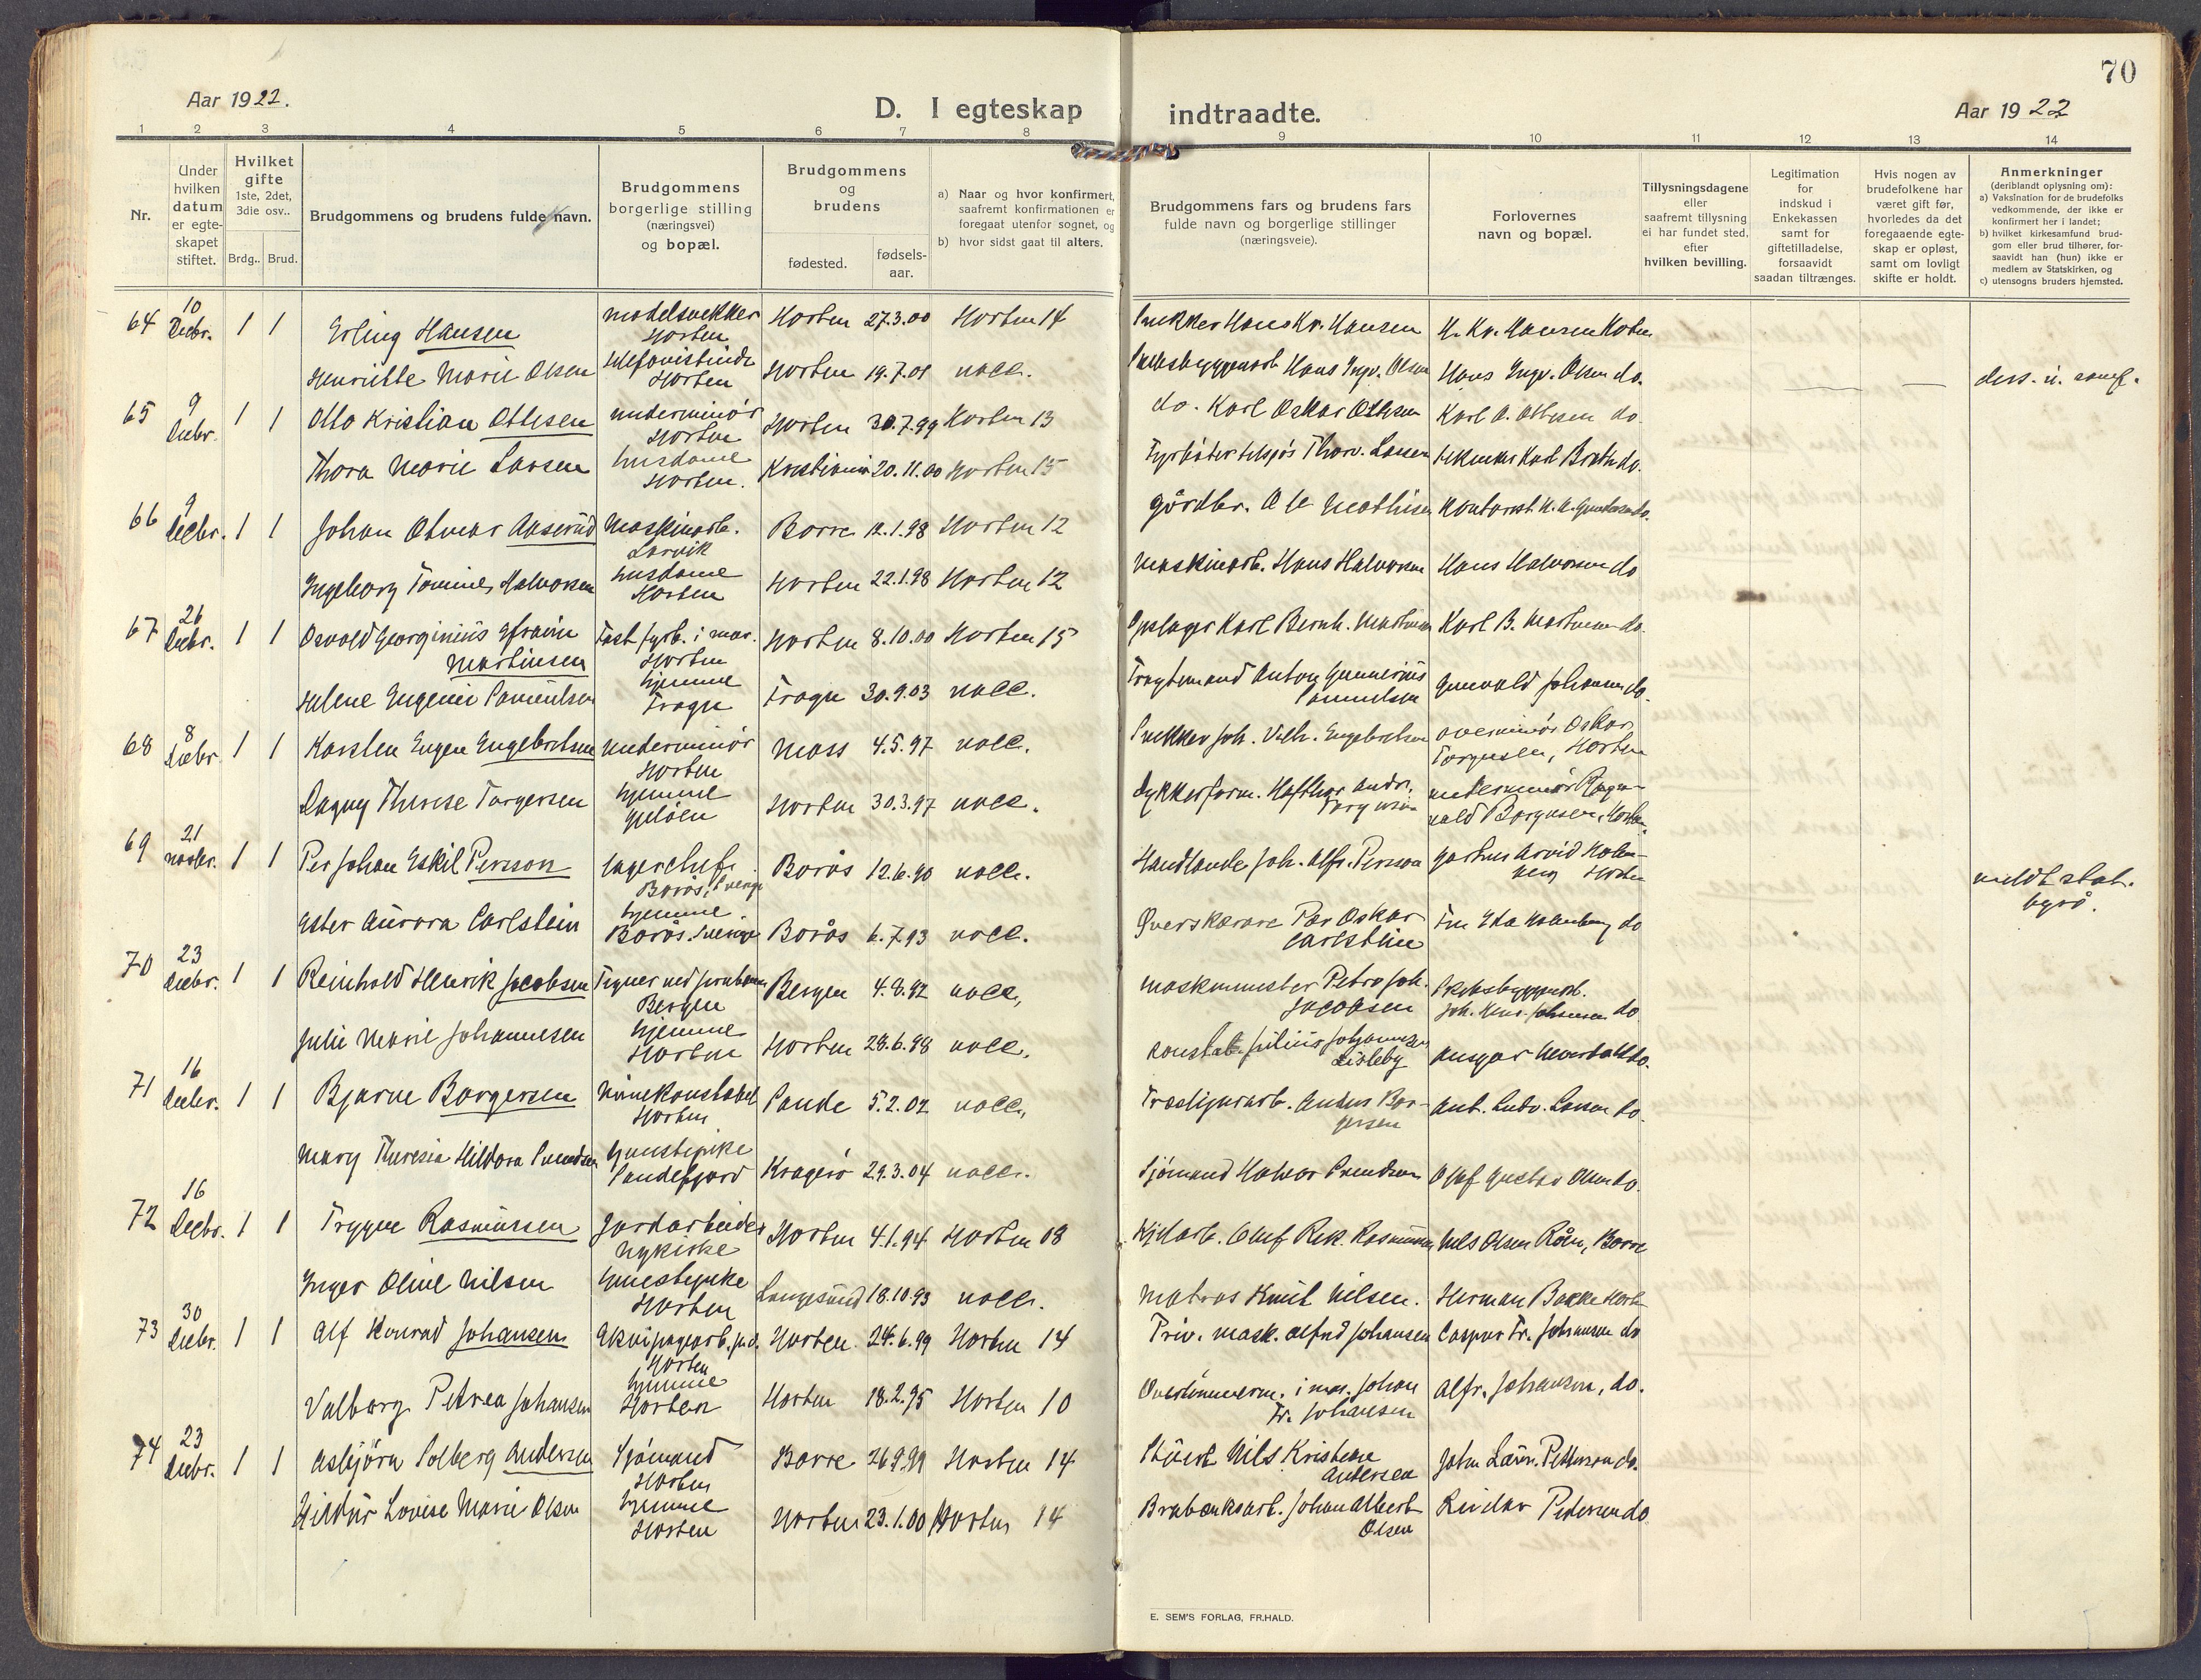 70
Aar 1922.
D. I egteskap indtraadte.
Aar 1922
1 2 3 4 5 6 7 8 9 10 11 12 13 14
Nr.
Under hvilken datum er egte-skapet stiftet.
Hvilket gifte 1ste, 2det, 3die osv..
Brdg.. Brud.
Brudgommens og brudens fulde navn.
Brudgommens borgerlige stilling (næringsvei) og bopæl.
Brudgommens og brudens
fødested.
fødsels-aar.
a) Naar og hvor konfirmert, saafremt konfirmationen er foregaat utenfor sognet, og
b) hvor sidst gaat til alters.
Brudgommens fars og brudens fars fulde navn og borgerlige stillinger (næringsveie).
Forlovernes navn og bopæl.
Tillysningsdagene eller saafremt tillysning ei har fundet sted, efter hvilken bevilling.
Legitimation for indskud i Enkekassen samt for giftetilladelse, forsaavidt saadan tiltrænges.
Hvis nogen av brudefolkene har været gift før, hvorledes da det foregaaende egte-skap er opløst, samt om lovligt skifte er holdt.
Anmerkninger (deriblandt oplysning om):
a) Vaksination for de brudefolks vedkommende, der ikke er konfirmert her i landet;
b) hvilket kirkesamfund brud-gom eller brud tilhører, for-saavidt han (hun) ikke er medlem av Statskirken, og
c) utensogns bruders hjemsted.
64 10 Decbr. 1 1 Erling Hansen modelsnekker Horten Horten 27.3.00 Horten 14 Snekker Hans Kr. Hansen H. Kr. Hansen Horten
Henriette Marie Olsen telefonistinde Horten Horten 19.7.01 Hans Ingv. Olsen Hans Ingv. Olsen do.
65 9 Decbr. 1 1 Otto Kristian Ottesen underminör Horten Horten 30.7.99 Horten 13 do. Karl Oskar Ottesen Karl O. Ottesen do.
Thora Marie Larsen husdame Horten. Kristiania 20.11.00 Horten 15 Fyrböter Thorv. Larsen Karl do.
66 9 Decbr. 1 1 Johan Otmar Aaserud Maskinarb. Larvik Borre 12.1.98 Horten 12 gårdbr. Mathisen Kontorist do.
Ingeborg Tomine Halvorsen husdame Horten Horten 22.1.98 Horten 12 Maskinarb. Hans Halvorsen Hans Halvorsen do
67 26 Decbr. 1 1 Osvald Georginius Efraim Martinsen Fast fyrb. i mar. Horten Horten 8.10.00 Horten 15 Karl Bernh. Martinsen Karl B. Martinsen do.
Helene Eugenie Samuelsen hjemme Frogn Frogn 30.9.03 Anton Gunnerius Samuelsen Gunvald Johansen do.
68 8 Decbr. 1 1 Karsten Eugen Engebretsen underminör Horten Moss 4.5.97 Snekker Joh. Vilh. Engebretsen overminör Oskar Torgersen, Horten
Dagny Therese Torgersen hjemme Jelöen Horten 30.3.97 dykkerform. Andr. Torgersen underminör Ragnvald Borgersen, Horten
69 21 Novbr. 1 1 Per Johan Eskil Persson lagerchef Borås, Sverige Borås 12.6.90 Handlande Joh. Alfr. Persson gartner Arvid Holmberg Horten meldt stat. byrå.
Ester Aurora Carlstein hjemme. Borås. Sverige Borås 6.7.93 Per Oskar Carlstein Fru Eda Holmberg do
70 23 Decbr. 1 1 Reinhold Henrik Jacobsen Tegner ved jernbanen Bergen Bergen 4.8.92 maskinmester Petro Joh. Jacobsen Skibsbyggerarb. Joh. Johansen do
Julie Marie Johannesen hjemme Horten Horten 28.6.98 Julius Johannesen Lisleby Ansgar do.
71 16 Decbr. 1 1 Bjarne Borgersen Minekonstabel Horten Sande 5.2.02 Træsliperarb. Anders Borgersen Ant. Ludv. Larsen do.
Mary Theresia Hildora Svendsen tjenestepike Sandefjord Kragerö 29.3.04 Sjömand Svendsen Olaf Gustav Olsen do.
72 16 Decbr. 1 1 Trygve Rasmussen Jordarbeider Nykirke Horten 4.1.94 Horten 08 Kjelarb. Oluf Rasmussen Nels Olsen Borre
Inger Oline Nilsen tjenestepike Horten Langesund 18.10.93 Matros Knut Nilsen. Herman Bakke Horten
73 30 Decbr. 1 1 Alf Konrad Johansen Horten Horten. 24.6.99 Horten 14 Priv. mask. Alfred Johansen Caspar Fr. Johansen do
Valborg Petrea Johansen hjemme Horten Horten 18.2.95 Horten 10 Overtömmerm. i mar. Johan Fr. Johansen Alfr. Johansen, do.
74 23 Decbr. 1 1 Asbjörn Solberg Andersen Sjömand Horten Borre 26.9.99 Horten 14 Stuert Nils Kristian Andersen John Laur. Pettersen do.
Hildur Lovise Marie Olsen hjemme Horten Horten 23.1.00 Horten 14 Johan Albert Olsen Reidar Pedersen do
E. SEM'S FORLAG, FR.HALD.